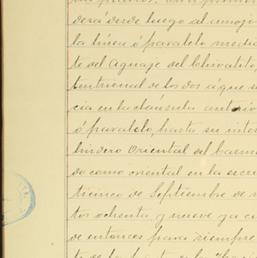 derá desde luego al amojo
la línea ó paralelo medic
te del Aguaje del Chivatito,
tentrional de los dos á que s
cia en la cláusula anterio
ó paralelo, hasta su inter
lindero Oriental del
do como oriental en la escri
ticinco de Septiembre de
tos ochenta y nueve ya ci
de entonces para siempre